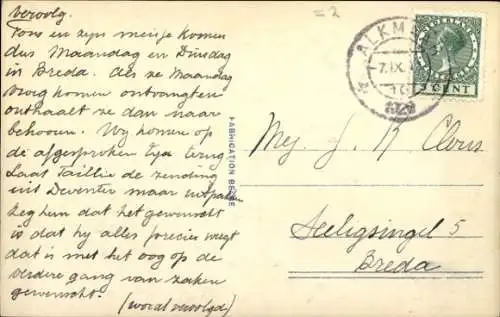 vervolg.
Tons en zyn meisje komen
dus Maandag en Dinsdag
in Breda. Als ze Maandag
vroeg komen ontvangt en
onthaalt ze dan naar
behooren. Wy komen op
de afgesproken tyd terug
Laat Taillie de zending
uit Deventer maar uitpakken
Zeg hem dat het gewenscht
is dat hy alles precies weegt
dat is met het oog op de
verdere gang van zaken
gewenscht.
(word vervolgd)
= 2
ALKMAAR
7.IX.
NEDERLAND
CENT
FABRICATION BELGE
Mej. J. K. Clous
Seeligsingel 5
Breda